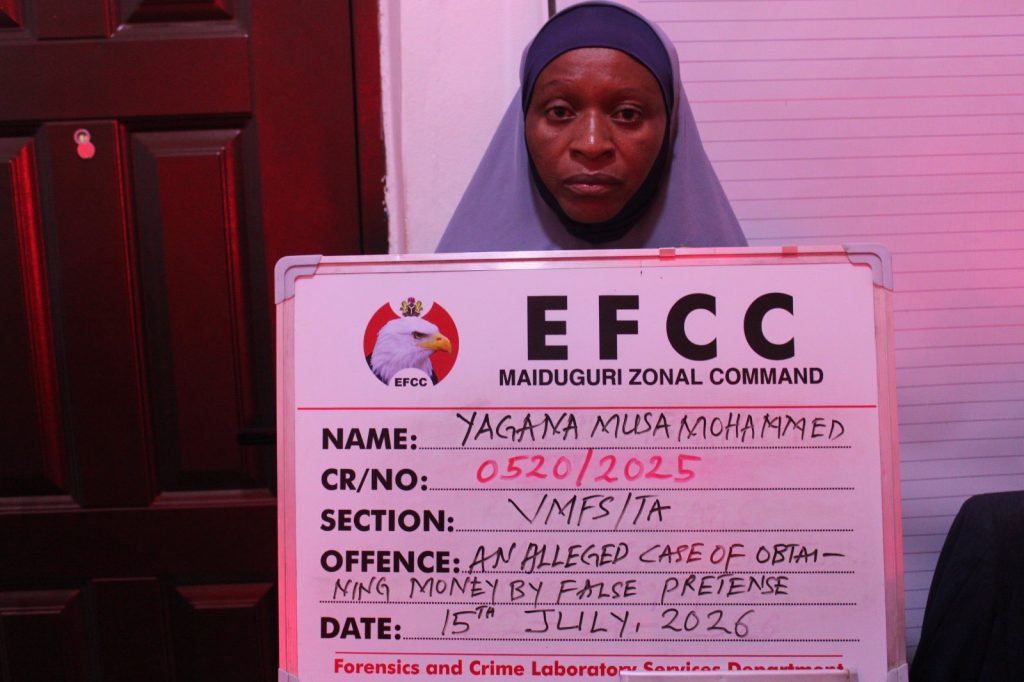 EFCC
EFCC
MAIDUGURI ZONAL COMMAND
NAME: YAGANA MUSA MOHAMMED
CR/NO: 0520/2025
SECTION: VMFS/TA
OFFENCE: AN ALLEGED CASE OF OBTAI-
NING MONEY BY FALSE PRETENSE
DATE: 15TH JULY, 2026
Forensics and Crime Laboratory Services Department